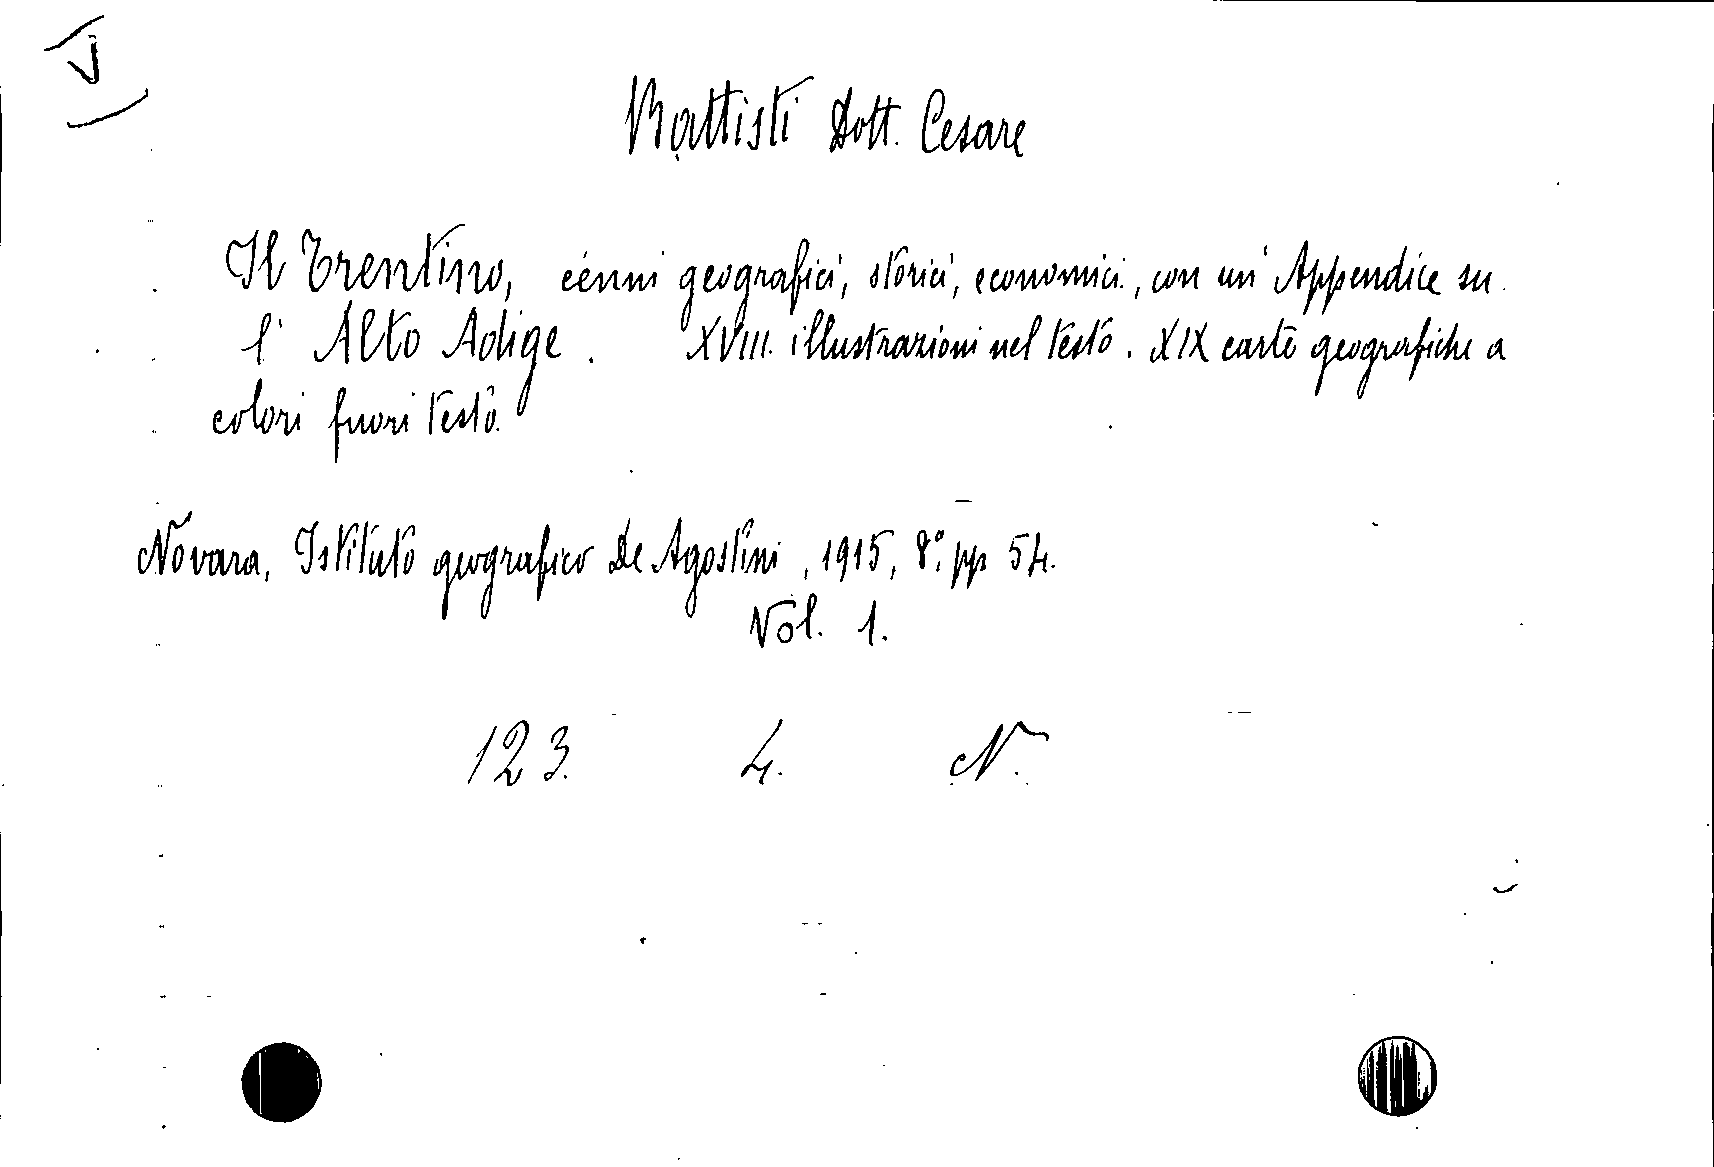 Battisti Dott. Cesare
Il Trentino, cenni geografici, storici, economici, con un' Appendice su
l' Alto Adige. XVIII. illustrazioni nel testo. XIX carte geografiche a
colori fuori testo.
Novara, Istituto geografico De Agostini, 1915, 8°, pp 54.
Vol. 1.
123. 4. N.